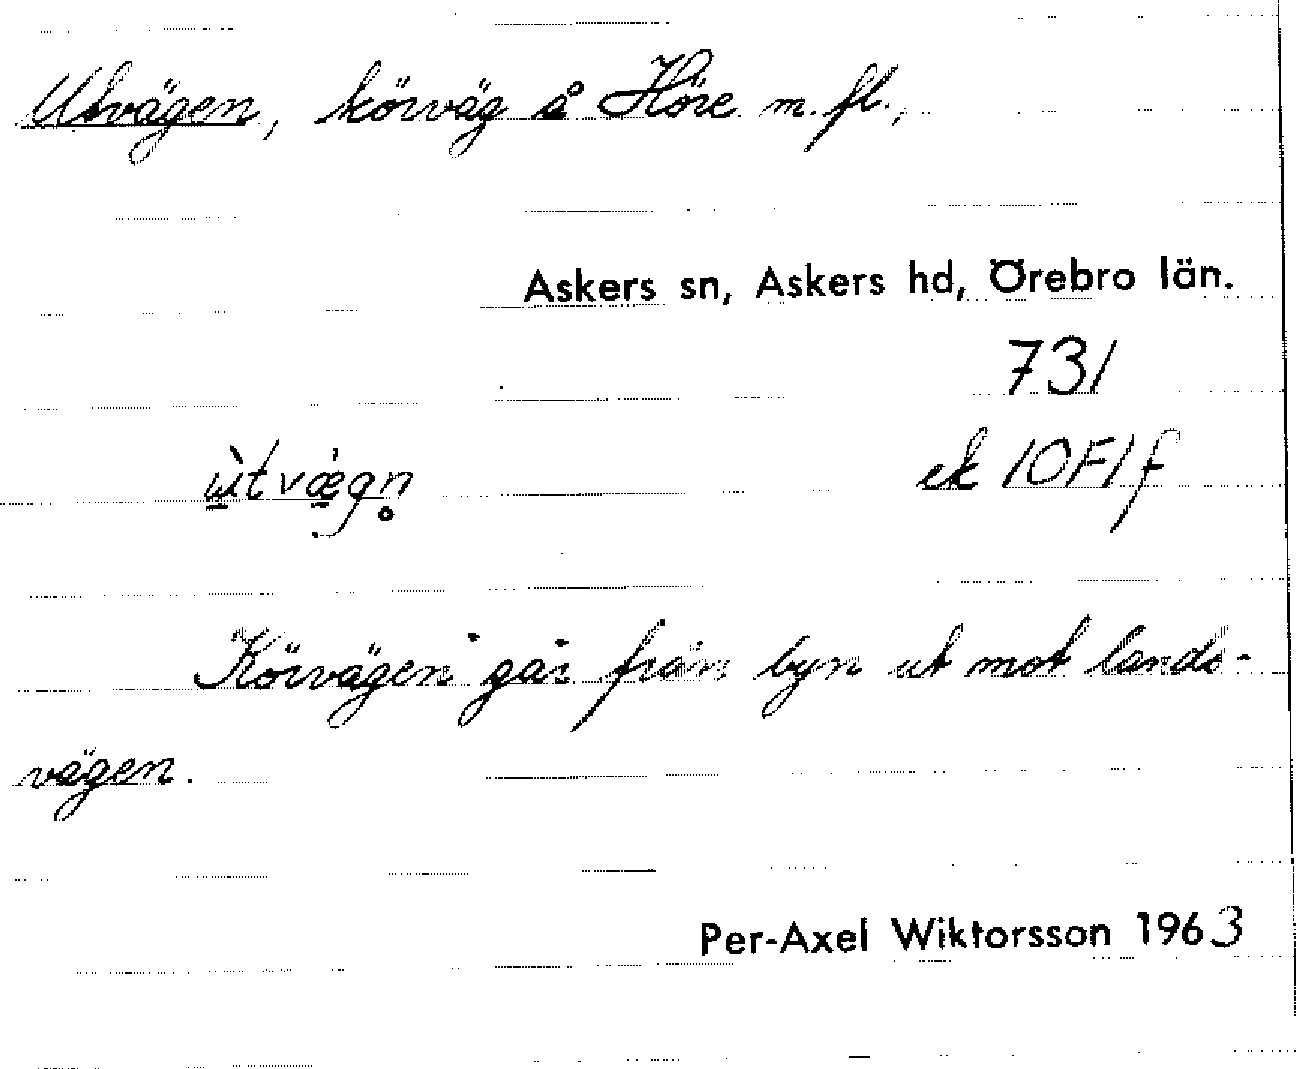 Utvägen, körväg å Höre m.fl.,
Askers sn, Askers hd, Örebro län.
731
ùtvǽgn̥
ek 10F1f
Körvägen går från byn ut mot lands-
vägen.
Per-Axel Wiktorsson 1963